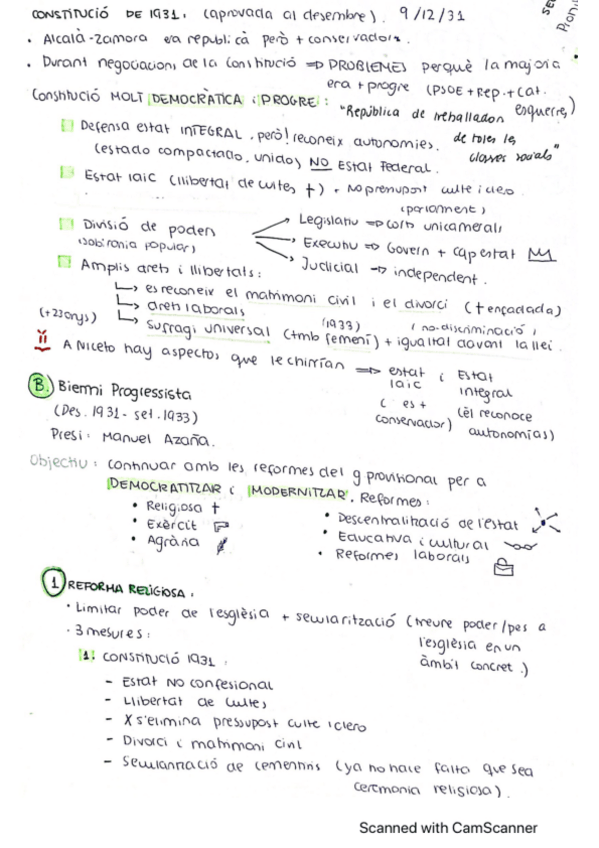 CONSTITUCIÓ DE 1931. (aprovada al desembre). 9/12/31
• Alcalà-Zamora era republicà però + conservador.
• Durant negociacions de la Constitució ⇒ PROBLEMES perquè la majoria
era + progre (PSOE + Rep. + Cat.
esquerres)
Constitució MOLT DEMOCRÀTICA i PROGRE: "República de treballadors
de totes les
classes socials"
Defensa estat INTEGRAL, però! reconeix autonomies.
(estado compactado, unido) NO Estat Federal.
Estat laic (llibertat de cultes †) + No pressupost culte i clero.
(parlament)
Divisió de poders
(sobirania popular)
→ Legislatiu ⇒ Corts unicamerals
→ Executiu ⇒ Govern + cap estat
→ Judicial → independent.
Amplis drets i llibertats:
↳ es reconeix el matrimoni civil i el divorci (+ endavada)
↳ drets laborals
(+23anys) ↳ Sufragi universal (+mb femení) + igualtat davant la llei.
(1933) (no-discriminació)
A Niceto hay aspectos que le chirrían ⇒ estat laic (es + conservador) i Estat integral (èl reconoce autonomías)
B. Bienni Progressista
(Des. 1931 - set. 1933)
Presi: Manuel Azaña.
Objectiu: continuar amb les reformes del g provisional per a
DEMOCRATITZAR i MODERNITZAR. Reformes:
• Religiosa †
• Exèrcit
• Agrària
• Descentralització de l'estat
• Educativa i cultural
• Reformes laborals
1 REFORMA RELIGIOSA.
• Limitar poder de l'esglèsia + secularització (treure poder/pes a
l'esglèsia en un
àmbit concret.)
• 3 mesures:
1. CONSTITUCIÓ 1931:
- Estat NO confesional
- Llibertat de cultes
- X s'elimina pressupost culte i clero
- Divorci i matrimoni civil
- Secularització de cementiris (ya no hace falta que sea
ceremonia religiosa).
Scanned with CamScanner